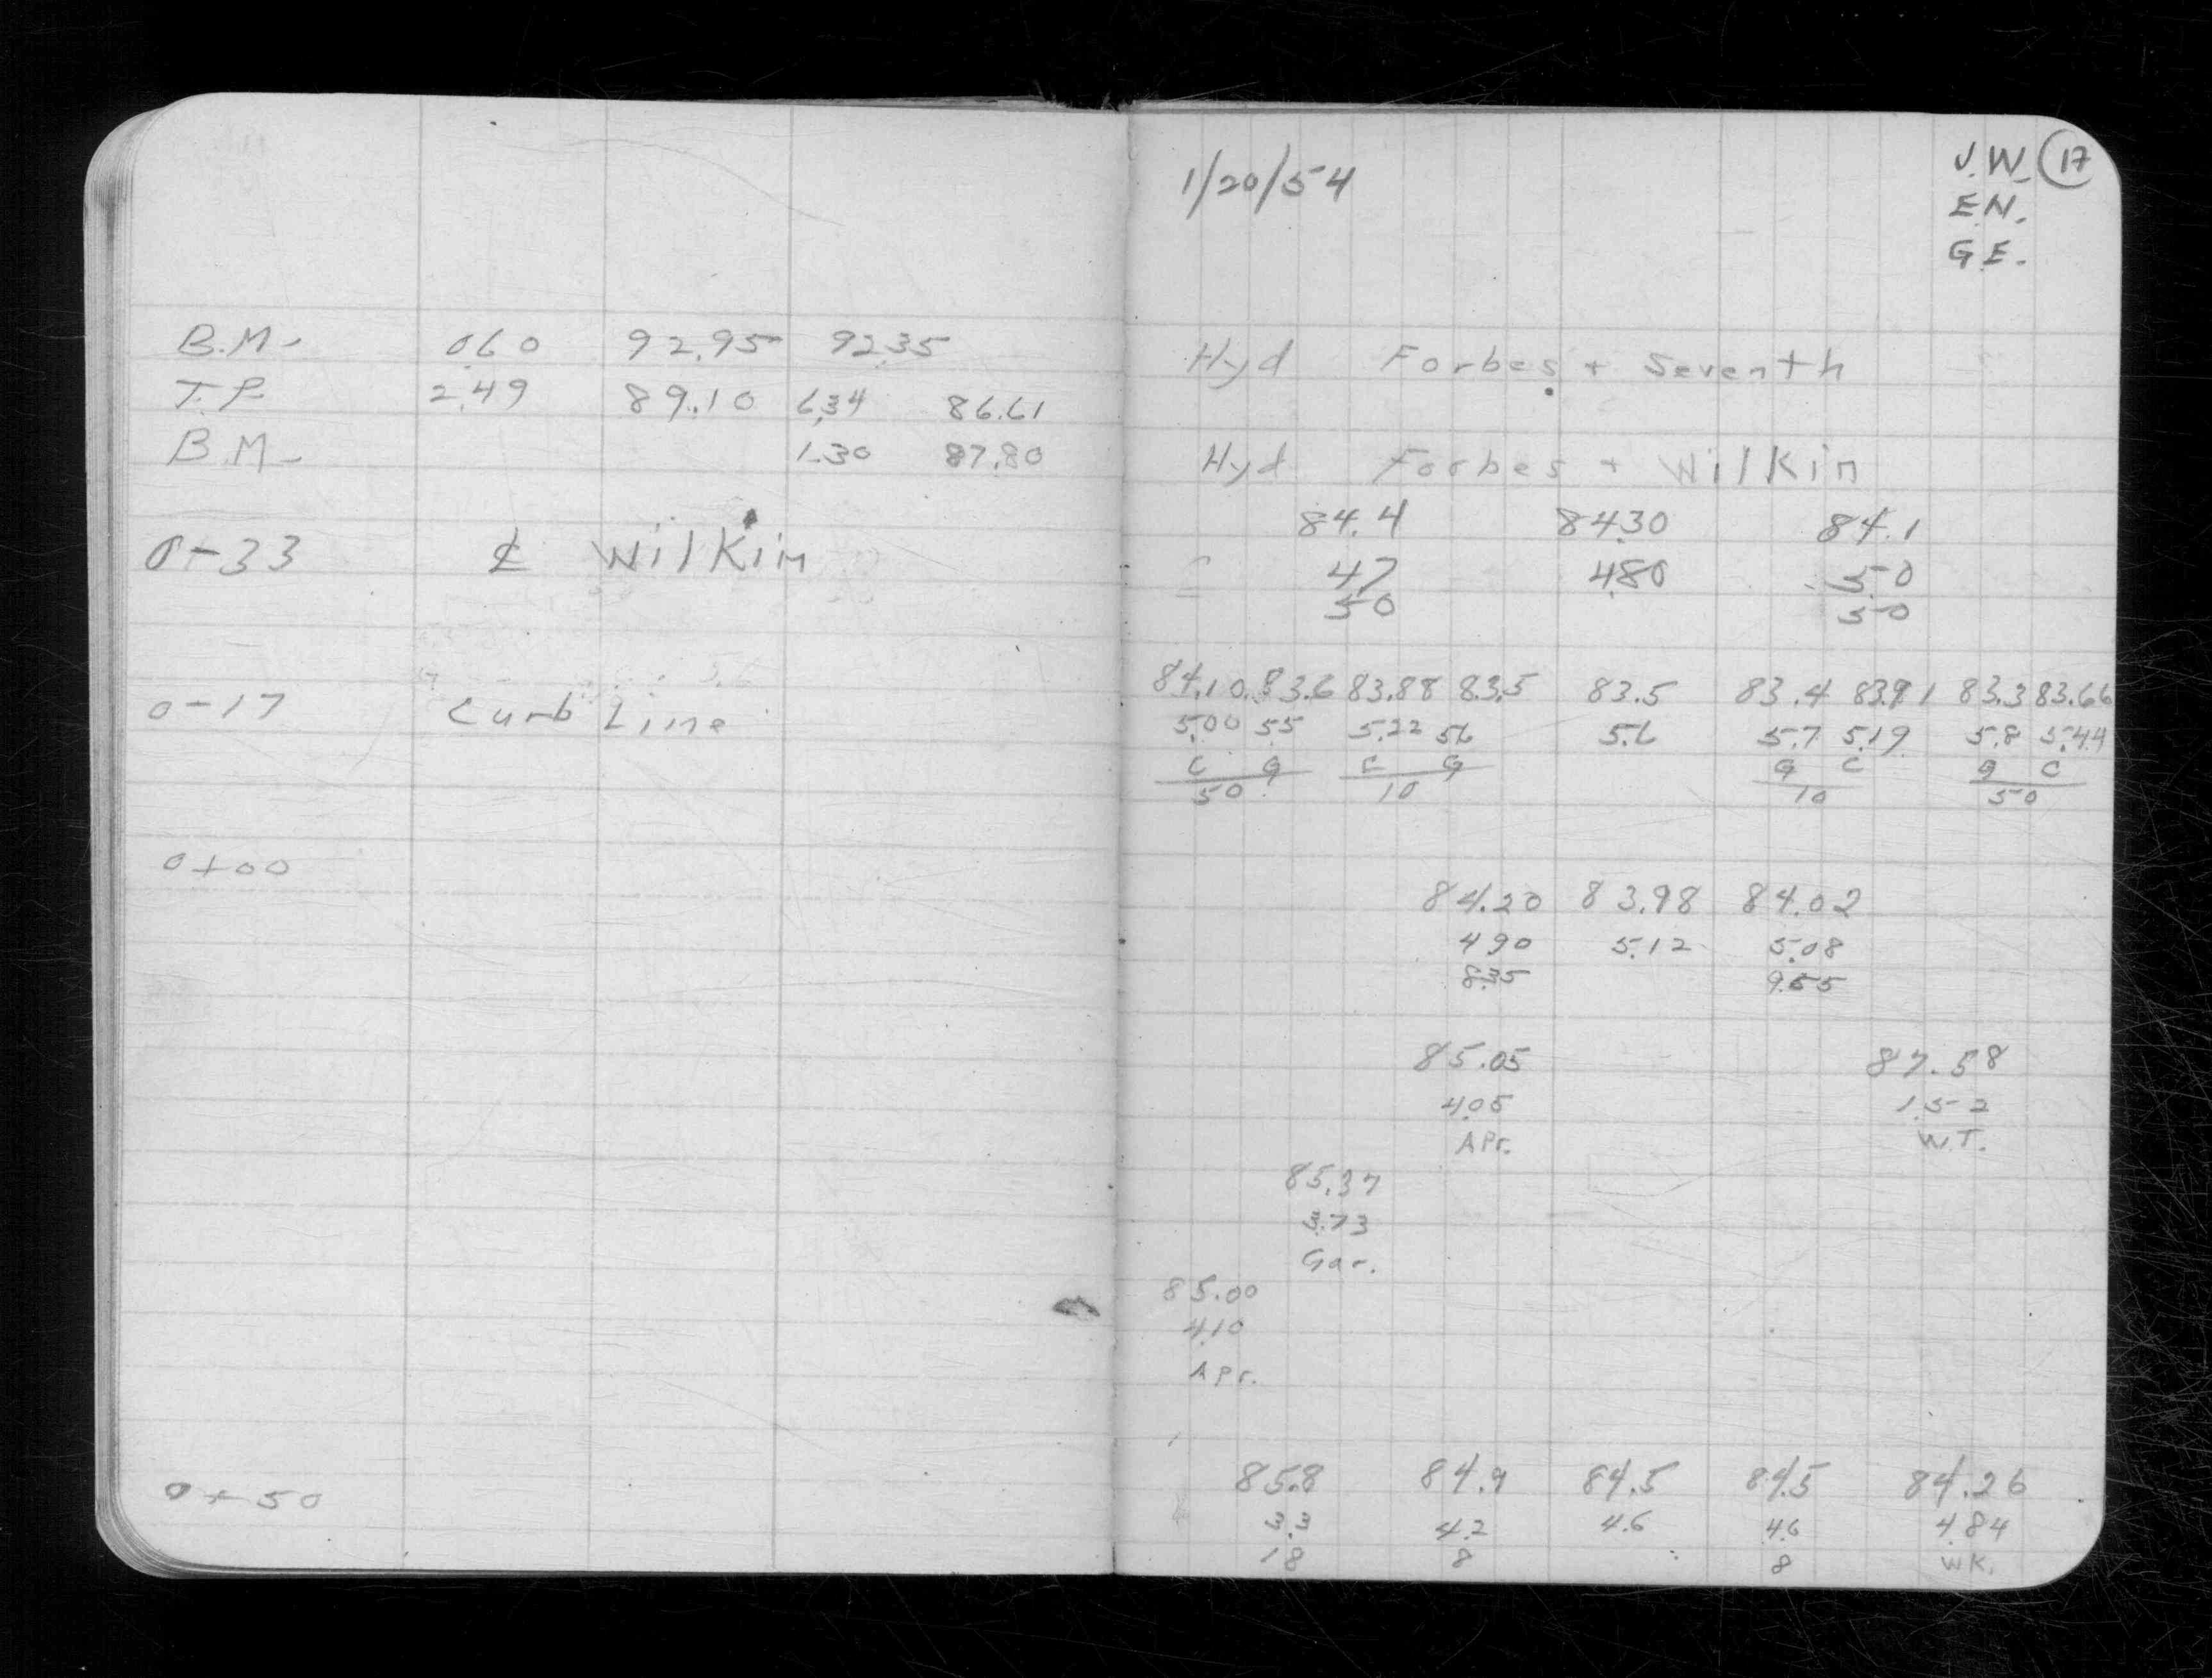 B.M- 0.60 92.95 92.35
T.P. 2.49 89.10 6.34 86.61
B.M- 1.30 87.80
0-33 ℄ Wilkin
0-17 Curb Line
0+00
0+50
1/20/54
J.W. 17
E.N.
G.E.
Hyd Forbes + Seventh
Hyd Forbes + Wilkin
84.4 84.30 84.1
4.7 4.80 5.0
50 50
84.10 83.6 83.88 83.5 83.5 83.4 83.91 83.3 83.66
5.00 5.5 5.22 5.6 5.6 5.7 5.19 5.8 5.44
C G C G G C G C
50 10 10 50
84.20 83.98 84.02
4.90 5.12 5.08
8.35 9.55
85.05 87.58
4.05 1.52
APr. W.T.
85.37
3.73
Gar.
85.00
4.10
APr.
85.8 84.9 84.5 84.5 84.26
3.3 4.2 4.6 4.6 4.84
18 8 8 WK.